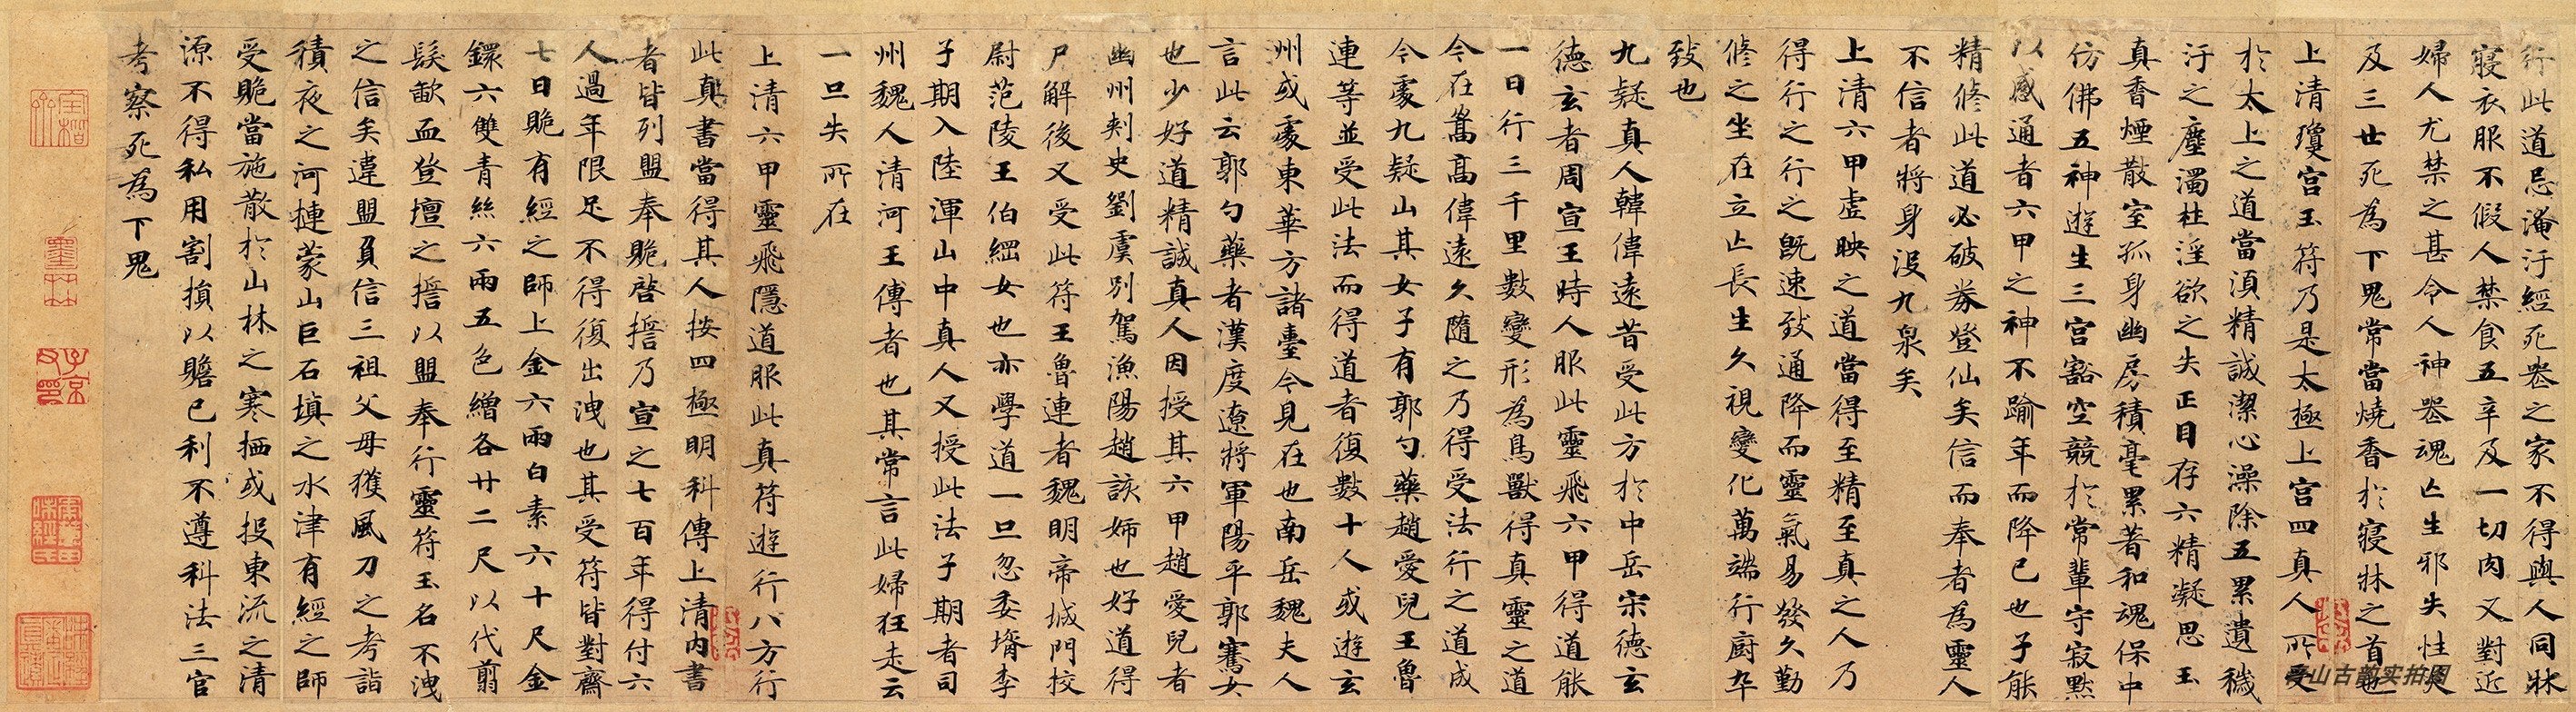 行此道忌淹汙經死喪之家不得與人同牀
寢衣服不假人禁食五辛及一切肉又對近
婦人尤禁之甚令人神喪魂亡生邪失性災
及三世死為下鬼常當燒香於寢牀之首也
上清瓊宮玉符乃是太極上宮四真人所受
於太上之道當須精誠潔心澡除五累遺穢
汙之塵濁杜淫欲之失正目存六精凝思玉
真香煙散室孤身幽房積毫累著和魂保中
仿佛五神遊生三宮豁空競於常輩守寂默
以感通者六甲之神不踰年而降己也子能
精修此道必破券登仙矣信而奉者為靈人
不信者將身沒九泉矣
上清六甲虛映之道當得至精至真之人乃
得行之行之既速致通降而靈氣易發久勤
修之坐在立亡長生久視變化萬端行廚卒
致也
九疑真人韓偉遠昔受此方於中岳宋德玄
德玄者周宣王時人服此靈飛六甲得道能
一日行三千里數變形為鳥獸得真靈之道
今在嵩高偉遠久隨之乃得受法行之道成
今處九疑山其女子有郭勺藥趙愛兒王魯
連等並受此法而得道者復數十人或遊玄
州或處東華方諸臺今見在也南岳魏夫人
言此云郭勺藥者漢度遼將軍陽平郭騫女
也少好道精誠真人因授其六甲趙愛兒者
幽州刺史劉虞別駕漁陽趙該姊也好道得
尸解後又受此符王魯連者魏明帝城門校
尉范陵王伯綱女也亦學道一旦忽委壻李
子期入陸渾山中真人又授此法子期者司
州魏人清河王傳者也其常言此婦狂走云
一旦失所在
上清六甲靈飛隱道服此真符遊行八方行
此真書當得其人按四極明科傳上清內書
者皆列盟奉賝啓誓乃宣之七百年得付六
人過年限足不得復出洩也其受符皆對齋
七日賝有經之師上金六兩白素六十尺金
鐶六雙青絲六兩五色繒各廿二尺以代翦
髮歃血登壇之誓以盟奉行靈符玉名不洩
之信矣違盟負信三祖父母獲風刀之考詣
積夜之河摙蒙山巨石填之水津有經之師
受賝當施散於山林之寒栖或投東流之清
源不得私用割損以贍己利不遵科法三官
考察死為下鬼
山古韵实拍图